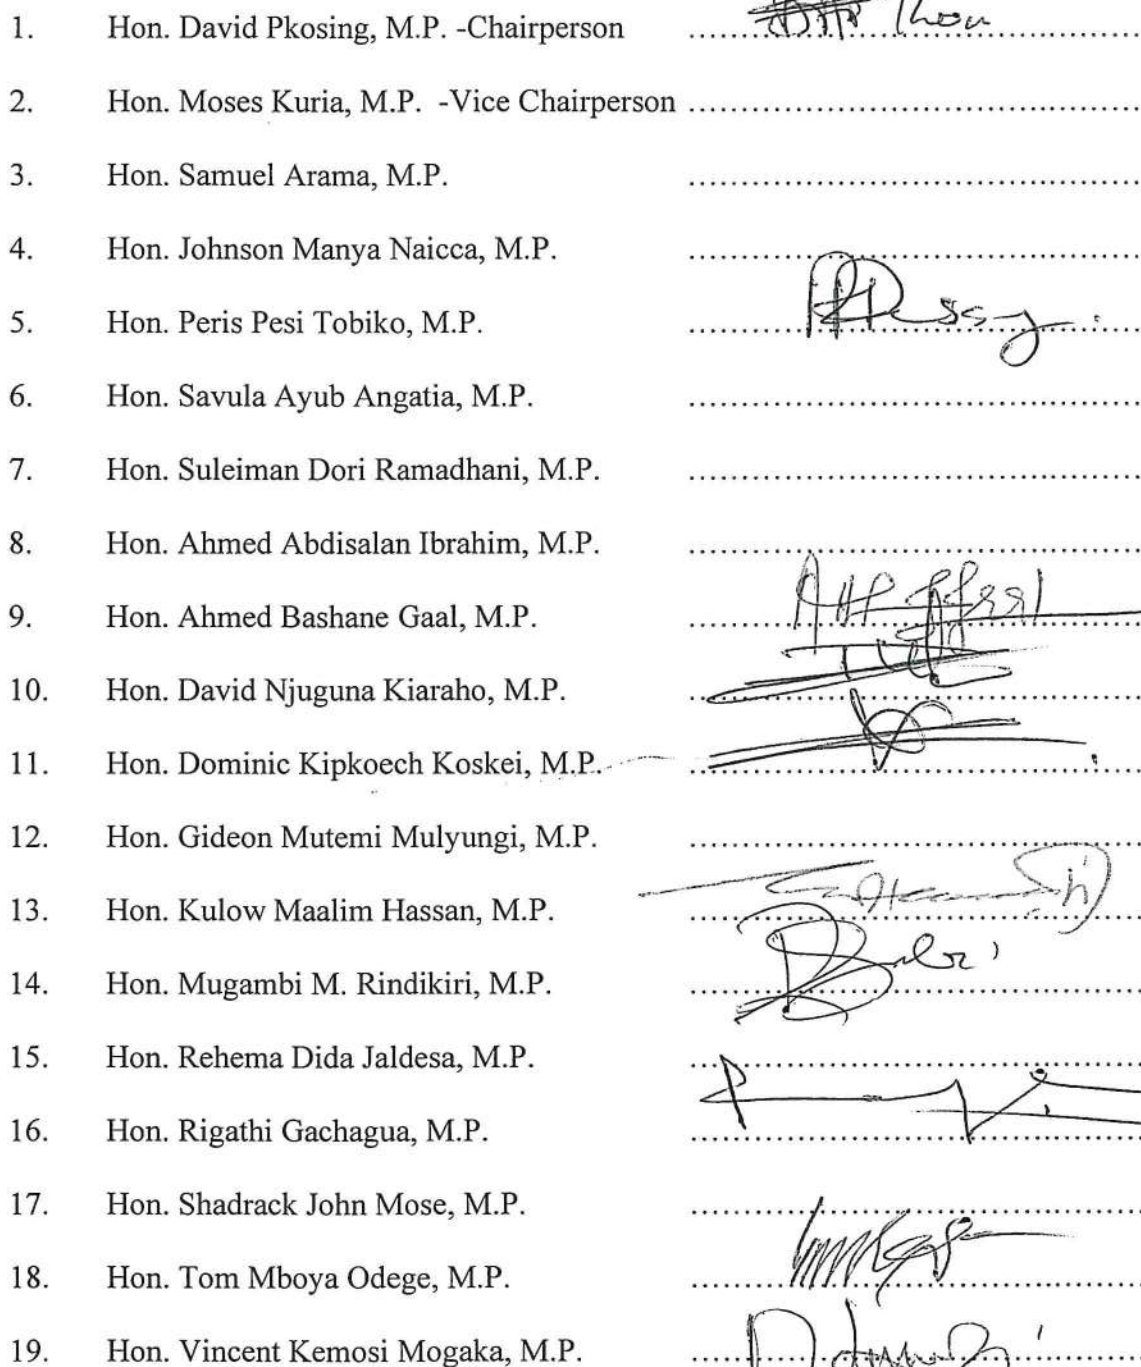 1. Hon. David Pkosing, M.P. -Chairperson ........................................
2. Hon. Moses Kuria, M.P. -Vice Chairperson ........................................
3. Hon. Samuel Arama, M.P. ........................................
4. Hon. Johnson Manya Naicca, M.P. ........................................
5. Hon. Peris Pesi Tobiko, M.P. ........................................
6. Hon. Savula Ayub Angatia, M.P. ........................................
7. Hon. Suleiman Dori Ramadhani, M.P. ........................................
8. Hon. Ahmed Abdisalan Ibrahim, M.P. ........................................
9. Hon. Ahmed Bashane Gaal, M.P. ........................................
10. Hon. David Njuguna Kiaraho, M.P. ........................................
11. Hon. Dominic Kipkoech Koskei, M.P. ........................................
12. Hon. Gideon Mutemi Mulyungi, M.P. ........................................
13. Hon. Kulow Maalim Hassan, M.P. ........................................
14. Hon. Mugambi M. Rindikiri, M.P. ........................................
15. Hon. Rehema Dida Jaldesa, M.P. ........................................
16. Hon. Rigathi Gachagua, M.P. ........................................
17. Hon. Shadrack John Mose, M.P. ........................................
18. Hon. Tom Mboya Odege, M.P. ........................................
19. Hon. Vincent Kemosi Mogaka, M.P. ........................................